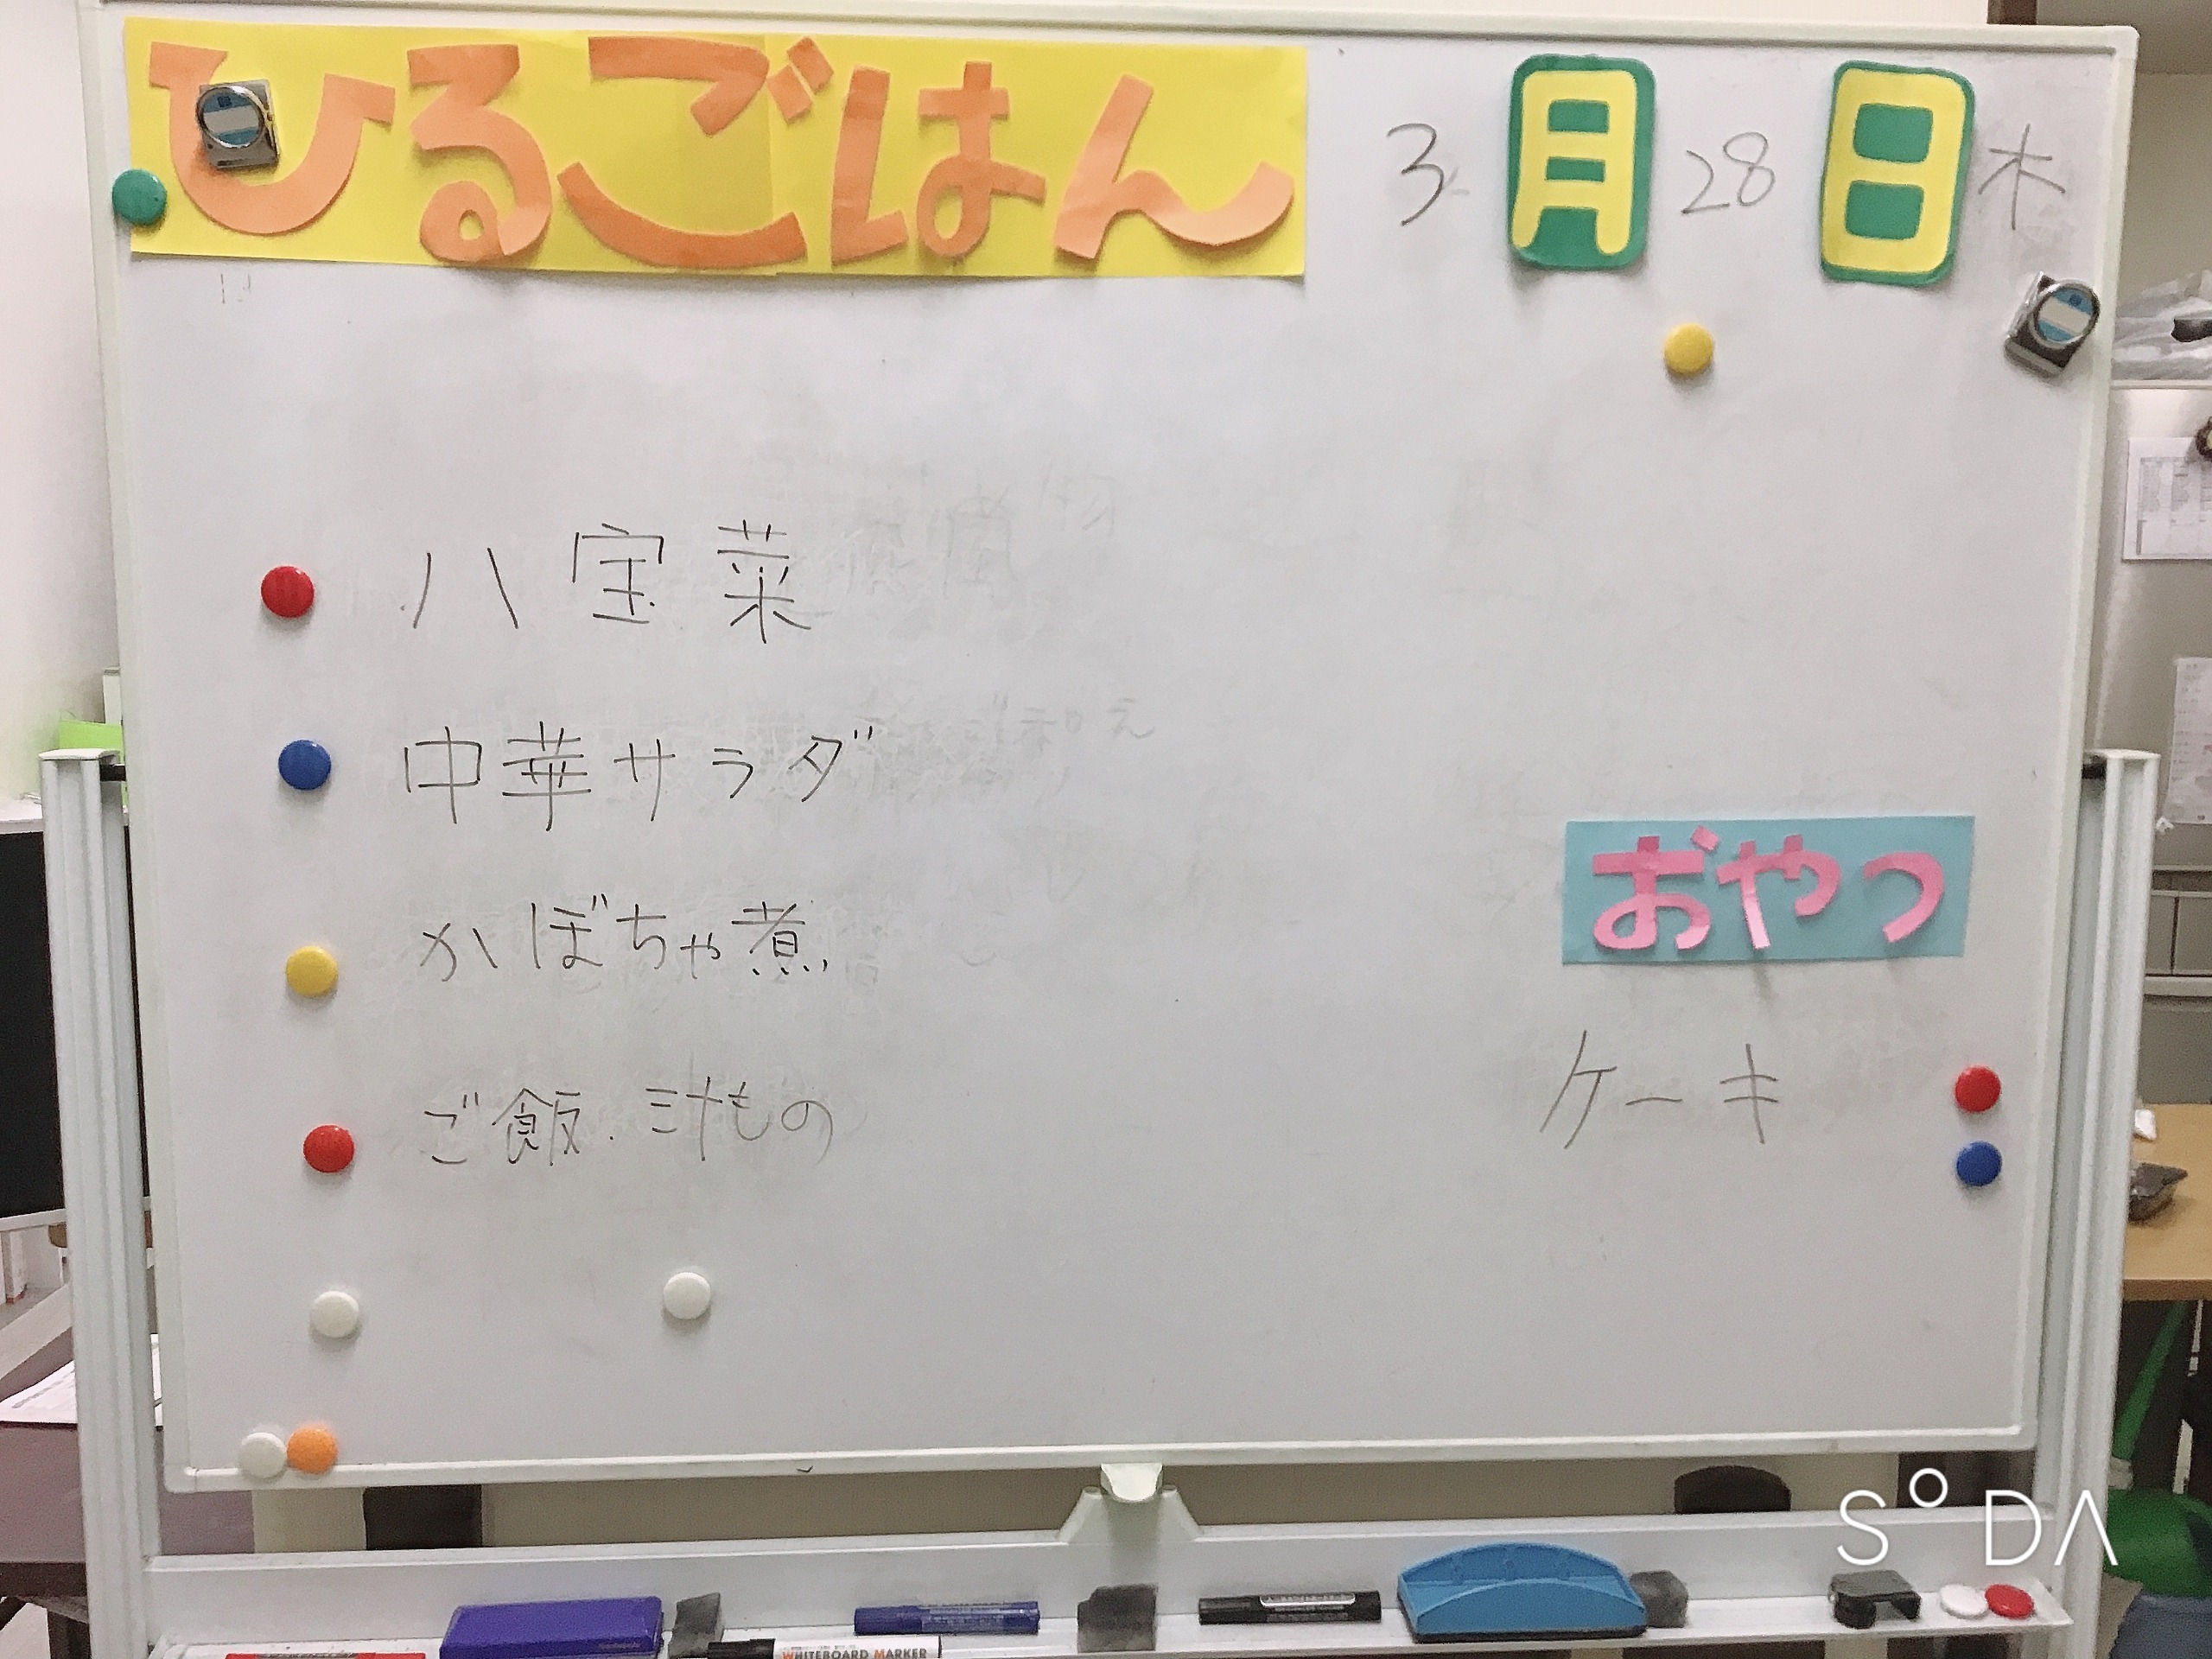 ひるごはん
3月28日 木
八宝菜
中華サラダ
かぼちゃ煮
ご飯.汁もの
おやつ
ケーキ
SODA
WHITEBOARD MARKER